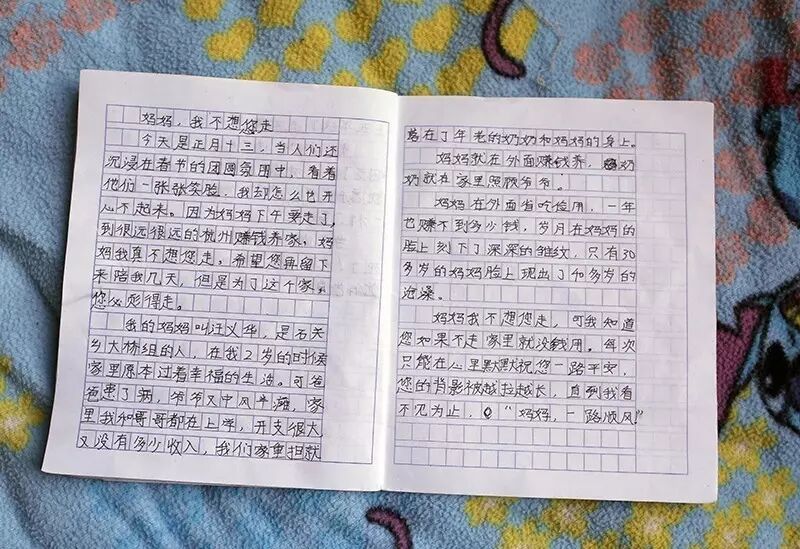 妈妈，我不想您走
今天是正月十三，当人们还
沉浸在春节的团圆氛围中，看着
他们一张张笑脸，我却怎么也开
心不起来。因为妈妈下午要走了，
到很远很远的杭州赚钱养家。妈
妈我真不想您走，希望您再留下
来陪我几天，但是为了这个家，
您必须得走。
我的妈妈叫汪义华，是石关
乡大林组的人，在我2岁的时候
家里原本过着幸福的生活。可爸
爸患了病，爷爷又中风半瘫，家
里我和哥哥都在上学，开支很大
又没有多少收入，我们家重担就
落在了年老的奶奶和妈妈的身上。
妈妈就在外面赚钱养，奶
奶就在家里照顾爷爷。
妈妈在外面省吃俭用，一年
也赚不到多少钱，岁月在妈妈的
脸上刻下了深深的皱纹，只有30
多岁的妈妈脸上现出了40多岁的
沧桑。
妈妈我不想您走，可我知道
您如果不走家里就没钱用。每次
只能在心里默默祝您一路平安，
您的背影被越拉越长，直到我看
不见为止，“妈妈，一路顺风！”